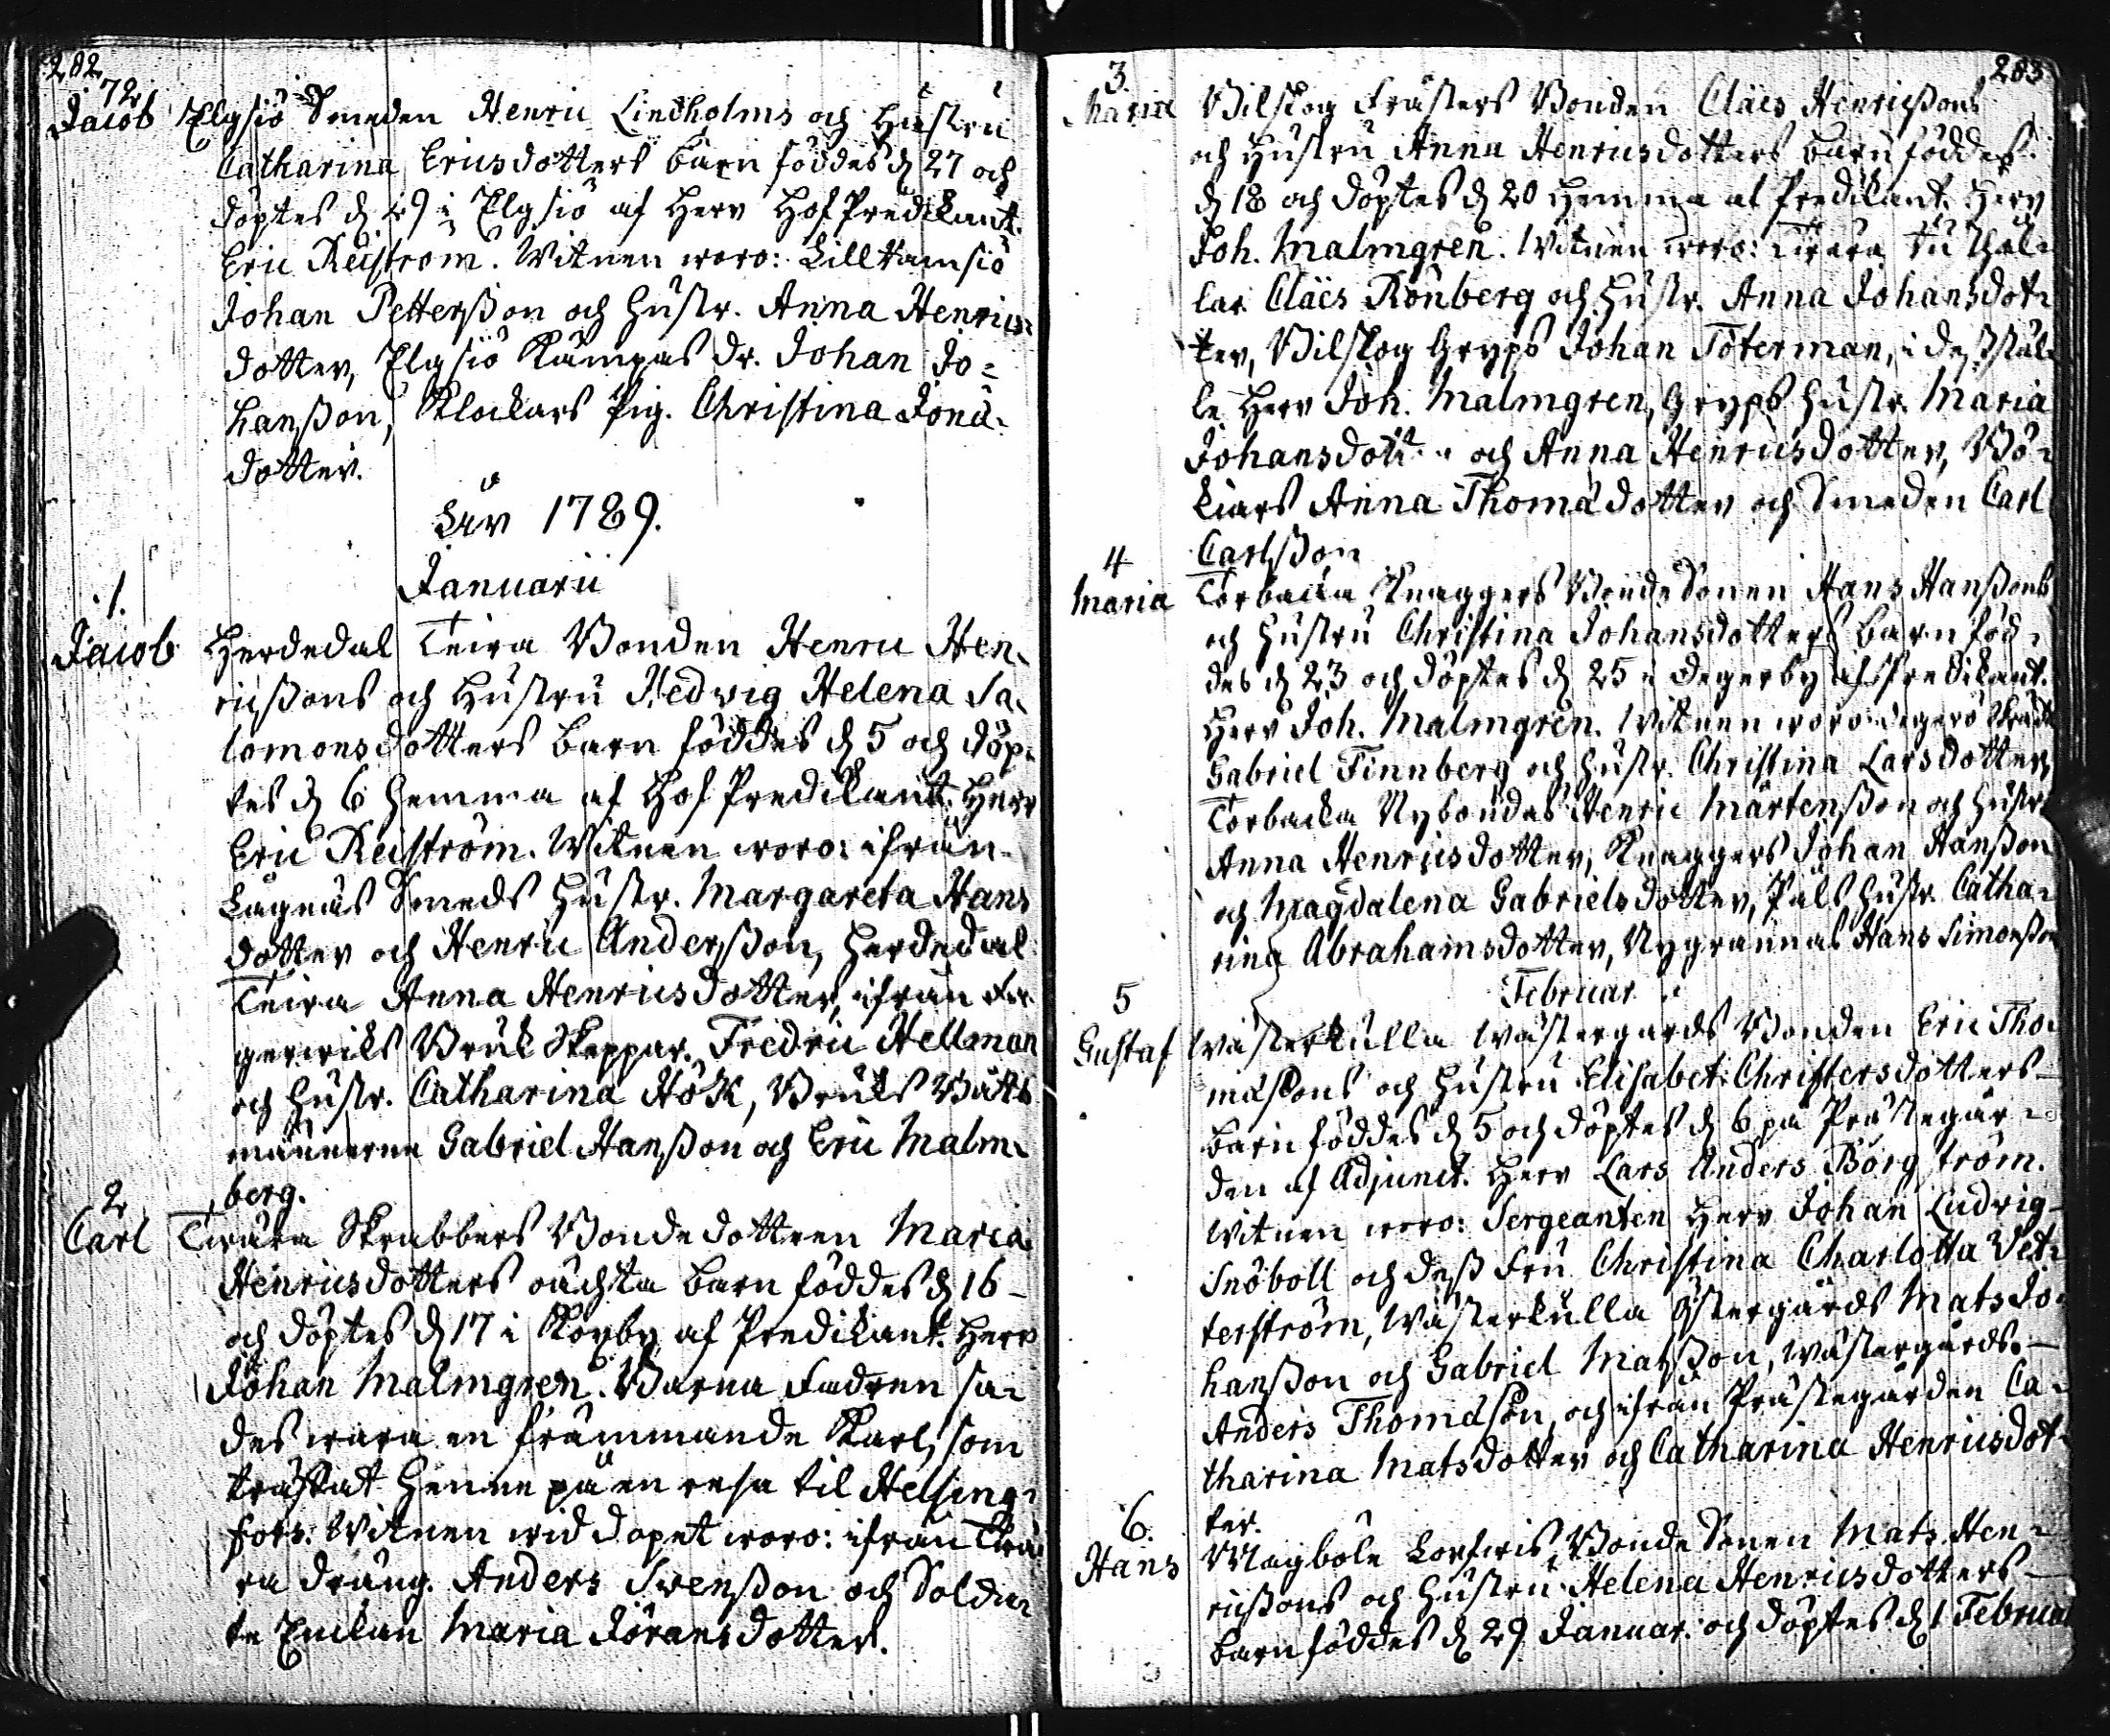 282.
72.
Jacob Elgsiö Smeden Henric Lindholms och Hustru
Catharina Ericsdotters barn föddes d 27 och
döptes d 29 i Elgsiö af Herr Hof Predikant.
Eric Reiström. Witnen woro: Lill Ramsiö
Johan Petterßon och hustr. Anna Henrics-
dotter, Elgsiö Kämpas dr. Johan Jo=
hanßon, Klockars Pig. Christina Jona-
dotter.
Åhr 1789.
Januarii
1.
Jacob Herdedal Teira Bonden Henric Hen-
ricßons och Hustru Hedvig Helena Sa-
lomonsdotters barn föddes d 5 och döp-
tes d 6 hemma af Hof Predikant. Herr
Eric Reiström. Witnen woro: ifrån
Lagnäs Smeds Hustr. Margareta Hans
dotter och Henric Anderßon, Herdedal
Teira Anna Henricsdotter, ifrån Fa-
gerwiks Bruk Skeppar. Fredric Hellman
och Hustr. Catharina Hök, Bruks Båts
männerne Gabriel Hanßon och Eric Malm-
berg.
2
Carl Twära Skrabbers Bondedottren Maria
Henricsdotters oächta barn föddes d 16
och döptes d 17 i Köpby af Predikant. Herr
Johan Malmgren. Barna Fadren sa-
des wara en främmande Karl, som
träffat henne på en resa til Helsing-
fors. Witnen wid dopet woro: ifrån Twä
ra dräng. Anders Swenßon och Solda-
te Enkan Maria Göransdotter.
283
3.
Maria Billskog Frästers Bonden Claës Henricßons
och Hustru Anna Henricsdotters barn föddes
d 18 och döptes d 20 hemma af Predikant. Herr
Joh. Malmgren. Witnen woro: Twära
lar Claës Rönberg och Hustr. Anna Johansdot-
ter, Billskog Gryps Johan Töterman, i deß stäl-
le Herr Joh. Malmgren, Gryps hustr. Maria
Johansdott. och Anna Henricsdotter, Bö-
kars Anna Thomadotter och Smeden Carl
Carlßon
4
Maria Torbacka Knaggers Bonde Sonen Hans Hanßons
och Hustru Christina Johansdotters barn föd-
des d 23 och döptes d 25 i Degerby af Predikant.
Herr Joh. Malmgren. Witnen woro: Degerö
Gabriel Finnberg och Hustr. Christina Larsdotter,
Torbacka Nybondas Henric Mårtenßon och hustr.
Anna Henricsdotter, Knaggers Johan Hanßon
och Magdalena Gabrielsdotter, Påls hustr. Catha-
rina Abrahamsdotter, Nygrannas Hans Simonßon
Februar.
5
Gustaf Wästerkulla Wästergårds Bonden Eric Tho-
masßons och Hustru Elisabet Christersdotters
barn föddes d 5 och döptes d 6 på Prästegår-
den af Adjunct. Herr Lars Anders Borgström.
Witnen woro: Sergeanten Herr Johan Ludvig
Snöboll och deß Fru Christina Charlotta Vet-
terström, Wästerkulla Östergårds Mats Jo-
hanßon och Gabriel Matsßon, Wästergårds
Anders Thomasßon, och ifrån Prästegården Ca-
tharina Matsdotter och Catharina Henricsdot-
ter.
6.
Hans Magböle Lorfwis Bonde Sonen Mats Hen-
ricßons och Hustru Helena Henricsdotters
barn föddes d 29 Januar. och döptes d 1 Februar